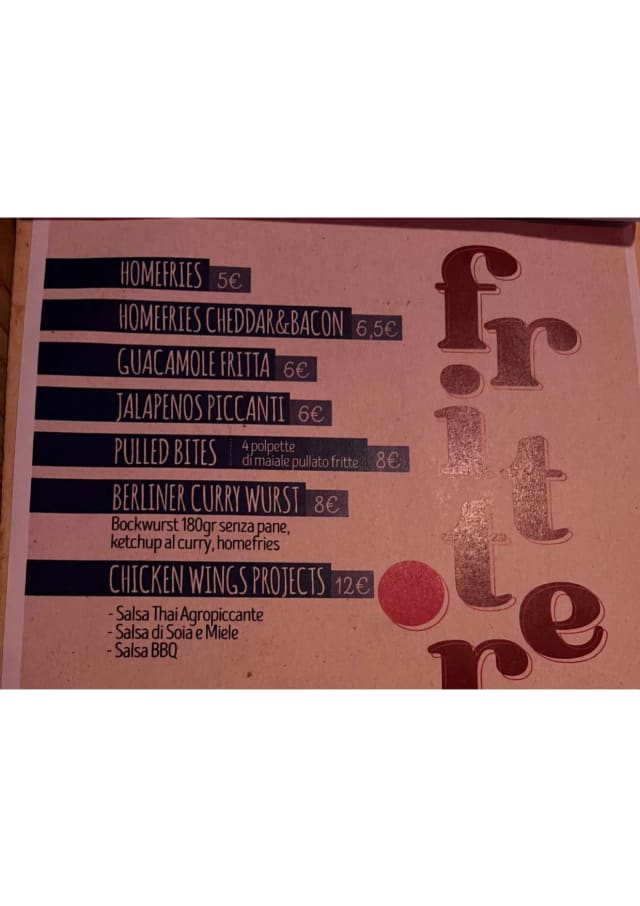 HOMEFRIES 5€
HOMEFRIES CHEDDAR&BACON 6,5€
GUACAMOLE FRITTA 6€
JALAPENOS PICCANTI 6€
PULLED BITES 4 polpette
di maiale pullato fritte 8€
BERLINER CURRY WURST 8€
Bockwurst 180gr senza pane,
ketchup al curry, homefries
CHICKEN WINGS PROJECTS 12€
- Salsa Thai Agropiccante
- Salsa di Soia e Miele
- Salsa BBQ
frittore